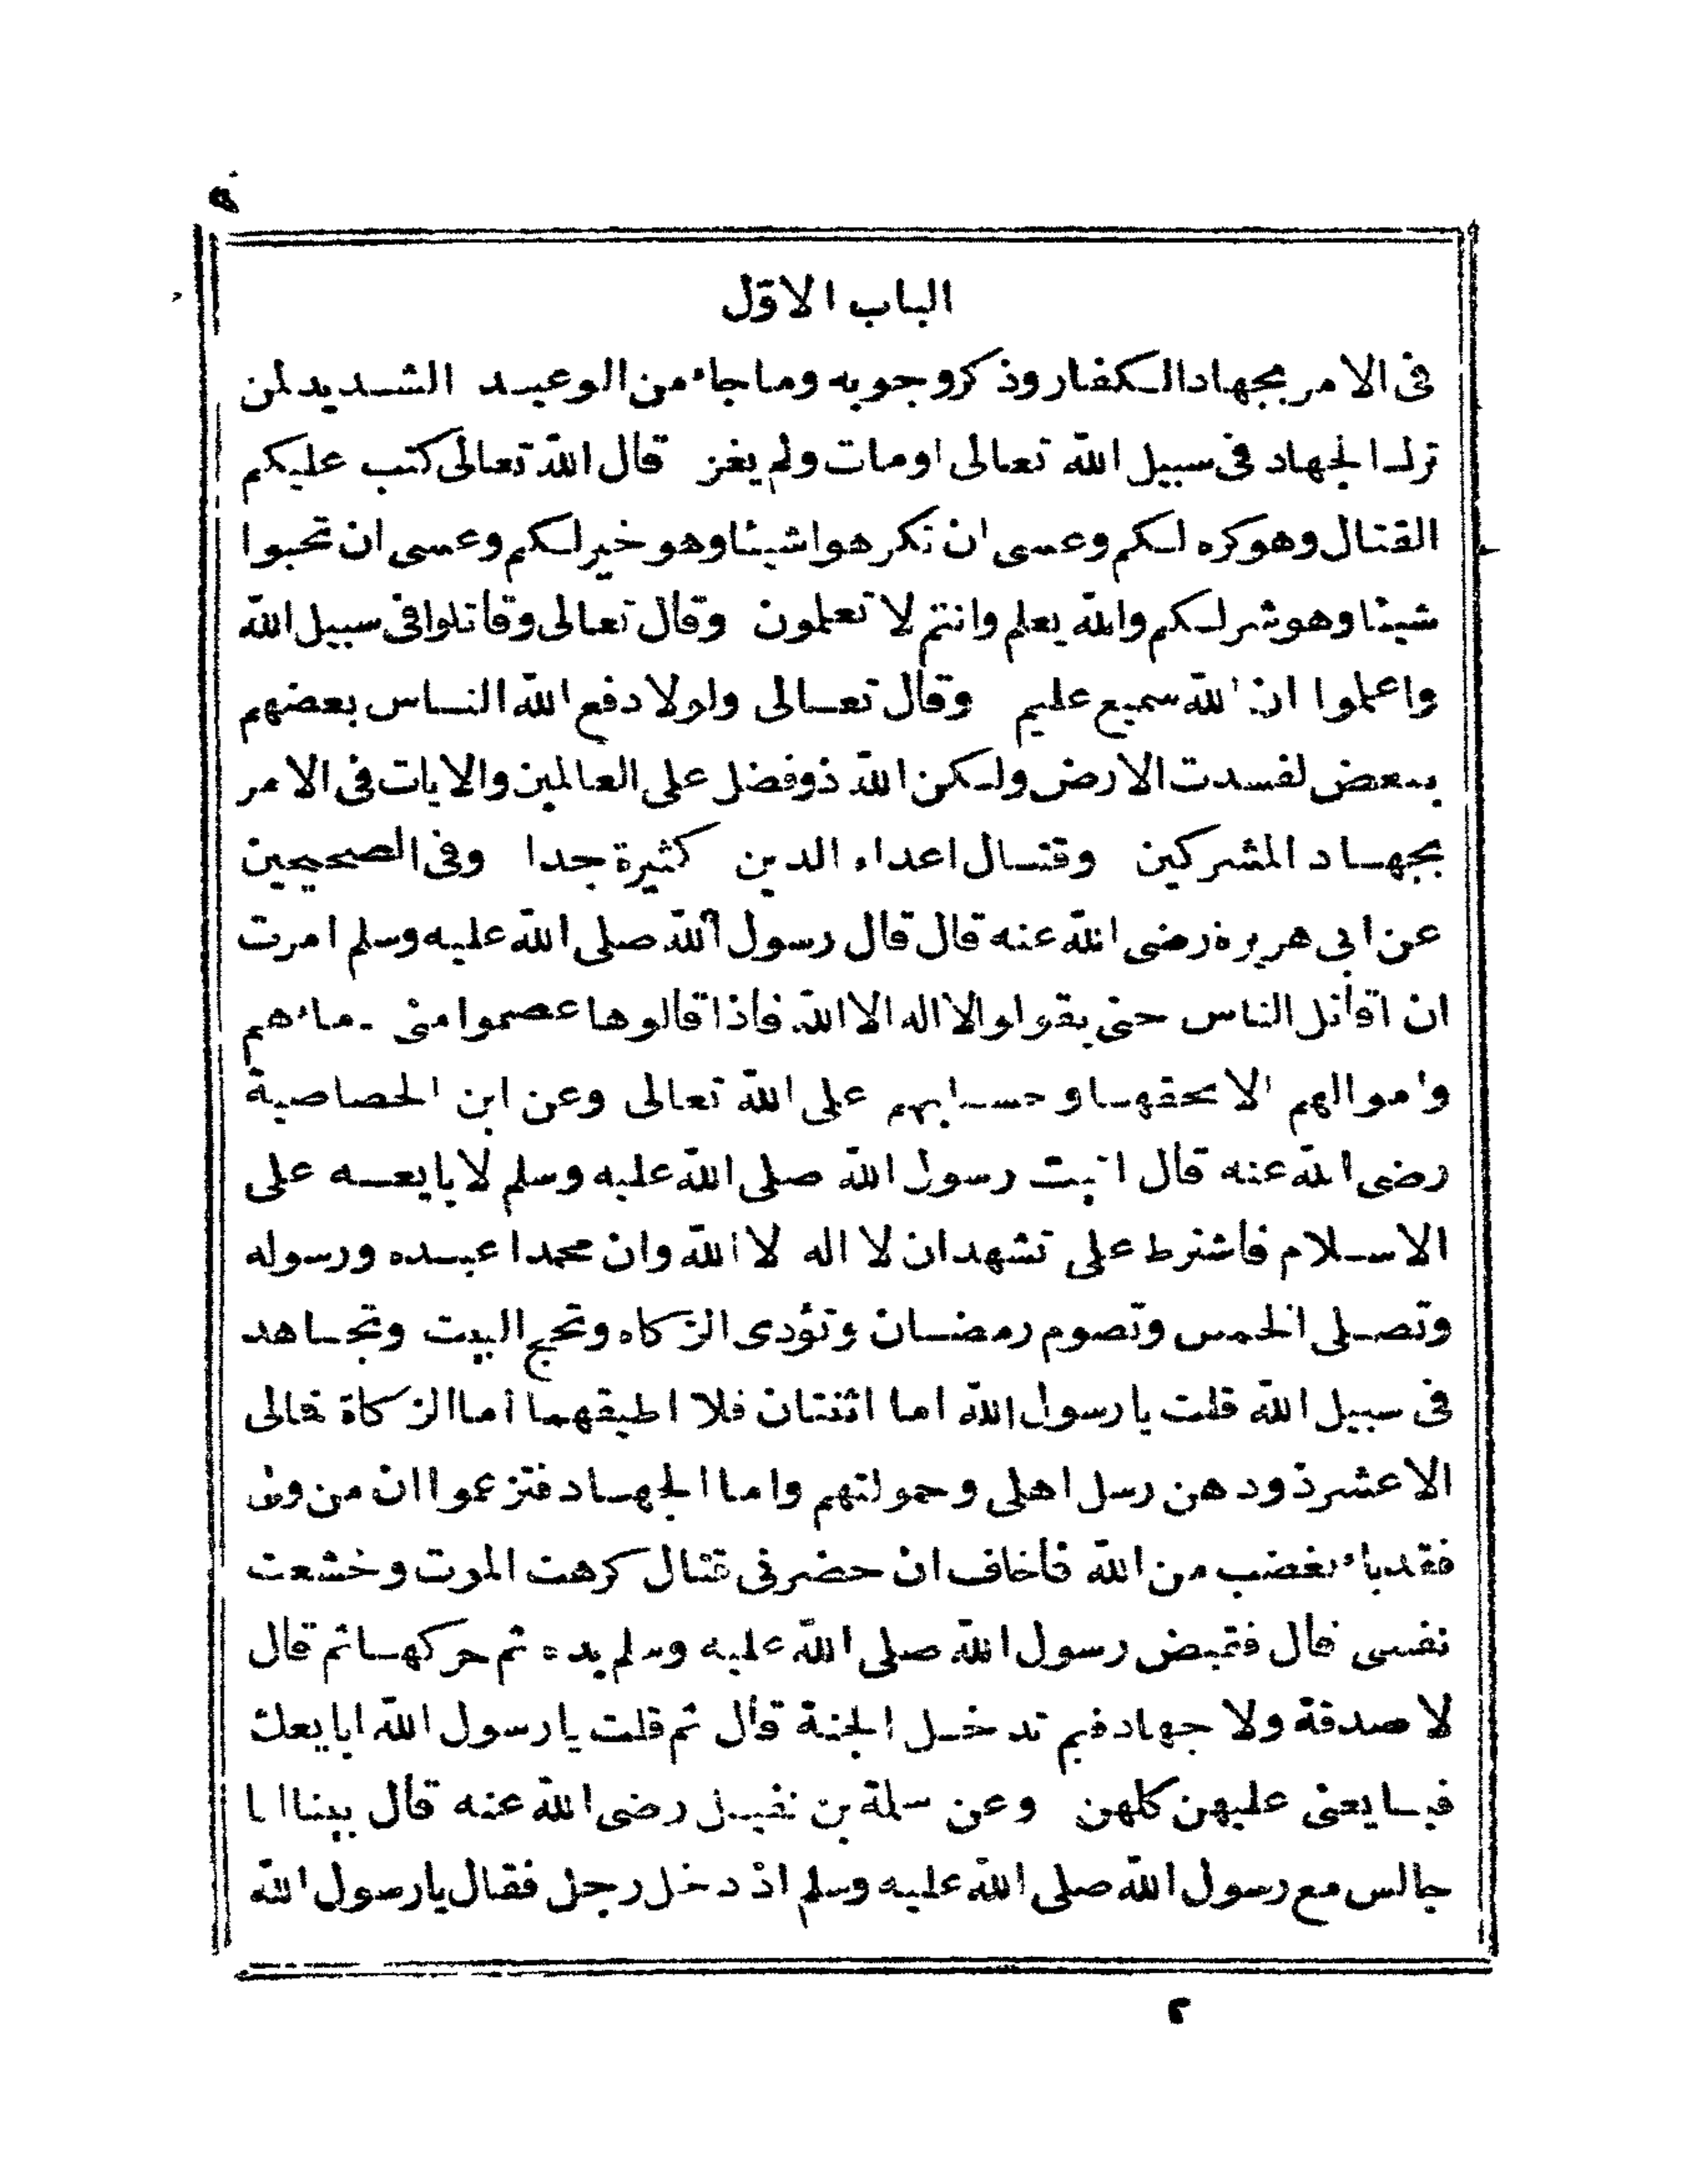 ٩
الباب الاوّل
فى الامر بجهاد الكفار وذكر وجوبه وما جاء من الوعيد الشديد لمن
ترك الجهاد فى سبيل الله تعالى او مات ولم يغز قال الله تعالى كتب عليكم
القتال وهو كره لكم وعسى ان تكرهوا شيئا وهو خير لكم وعسى ان تحبوا
شيئا وهو شر لكم والله يعلم وانتم لا تعلمون وقال تعالى وقاتلوا فى سبيل الله
واعملوا ان الله سميع عليم وقال تعالى ولولا دفع الله الناس بعضهم
ببعض لفسدت الارض ولكن الله ذو فضل على العالمين والايات فى الامر
بجهاد المشركين وقتال اعداء الدين كثيرة جدا وفى الصحيحين
عن ابى هريره رضى الله عنه قال قال رسول الله صلى الله عليه وسلم امرت
ان اقاتل الناس حتى يقولوا لا اله الا الله فاذا قالوها عصموا منى دماءهم
واموالهم الا بحقها وحسابهم على الله تعالى وعن ابن الخصاصية
رضى الله عنه قال اتيت رسول الله صلى الله عليه وسلم لابايعه على
الاسلام فاشترط على تشهد ان لا اله الا الله وان محمدا عبده ورسوله
وتصلى الخمس وتصوم رمضان وتؤدى الزكاه وتحج البيت وتجاهد
فى سبيل الله قلت يا رسول الله اما اثنتان فلا اطيقهما اما الزكاة فمالى
الا عشر ذود هن رسل اهلى وحمولتهم واما الجهاد فتزعموا ان من ولى
فقد باء بغضب من الله فاخاف ان حضرنى قتال كرهت الموت وخشعت
نفسى قال فقبض رسول الله صلى الله عليه وسلم يده ثم حركها ثم قال
لا صدقة ولا جهاد فبم تدخل الجنة قال ثم قلت يا رسول الله ابايعك
فبايعنى عليهن كلهن وعن سلمة بن نفيل رضى الله عنه قال بينا انا
جالس مع رسول الله صلى الله عليه وسلم اذ دخل رجل فقال يا رسول الله
٢